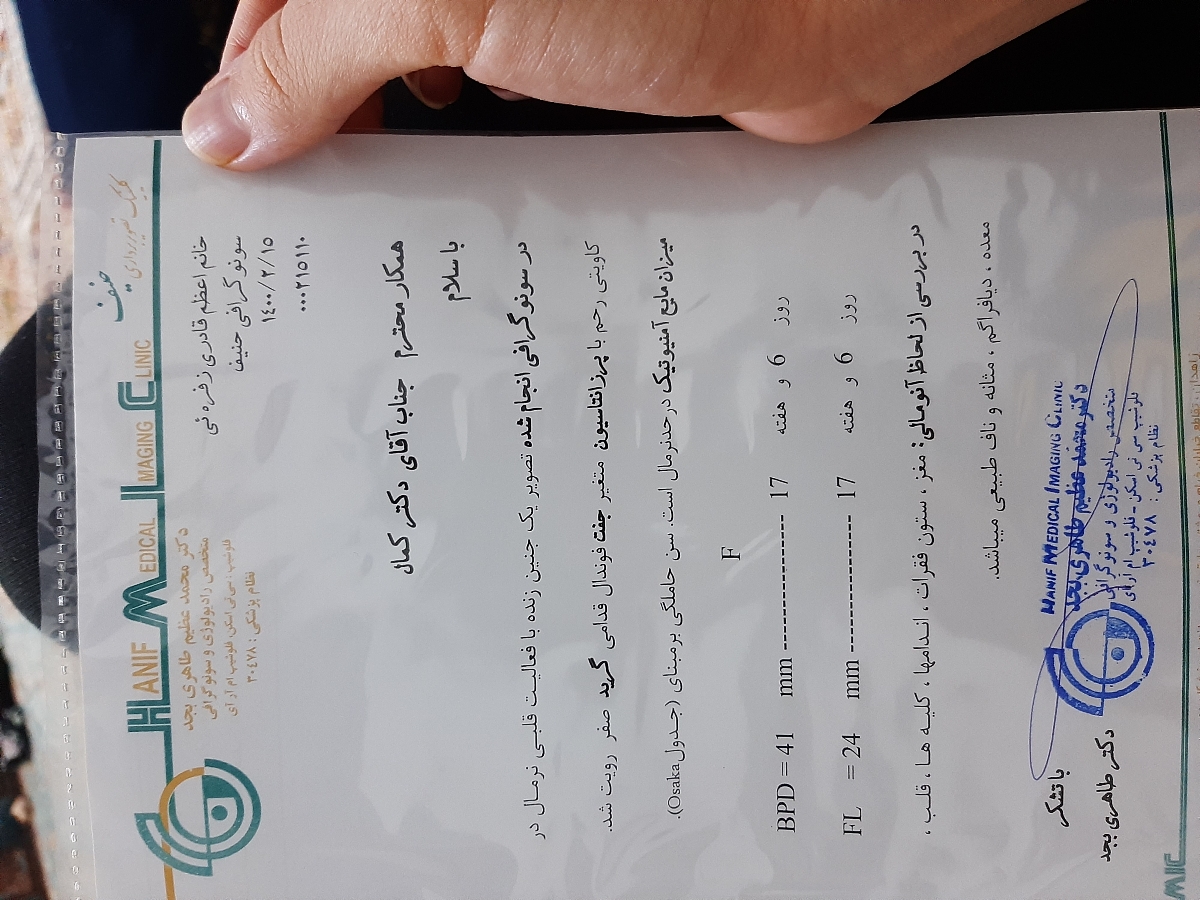 کلینیک تصویربرداری حنیف
HANIF MEDICAL IMAGING CLINIC
دکتر محمد عظیم طاهری بجد
متخصص رادیولوژی و سونوگرافی
فلوشیپ: سی تی اسکن، فلوشیپ ام آر ای
نظام پزشکی: ۳۰۴۷۸
خانم اعظم قادری زفره ئی
سونوگرافی حنیف
۱۴۰۰/۲/۱۵
۰۰۰۲۱۵۱۱۰
همکار محترم جناب آقای دکتر کمال
با سلام
در سونوگرافی انجام شده تصویر یک جنین زنده با فعالیت قلبی نرمال در
کاویتی رحم با پرزانتاسیون متغیر جفت فوندال قدامی گرید صفر رویت شد.
میزان مایع آمنیوتیک درحدنرمال است. سن حاملگی برمبنای (جدول Osaka).
F
BPD = 41 mm ---------------- 17 هفته و 6 روز
FL = 24 mm ---------------- 17 هفته و 6 روز
در بررسی از لحاظ آنومالی: مغز ، ستون فقرات ، اندامها ، کلیه ها ، قلب ،
معده ، دیافراگم ، مثانه و ناف طبیعی میباشد.
با تشکر
دکتر طاهری بجد
HANIF MEDICAL IMAGING CLINIC
دکتر محمد عظیم طاهری بجد
متخصص رادیولوژی و سونوگرافی
فلوشیپ سی تی اسکن - فلوشیپ ام آر ای
نظام پزشکی: ۳۰۴۷۸
MIC